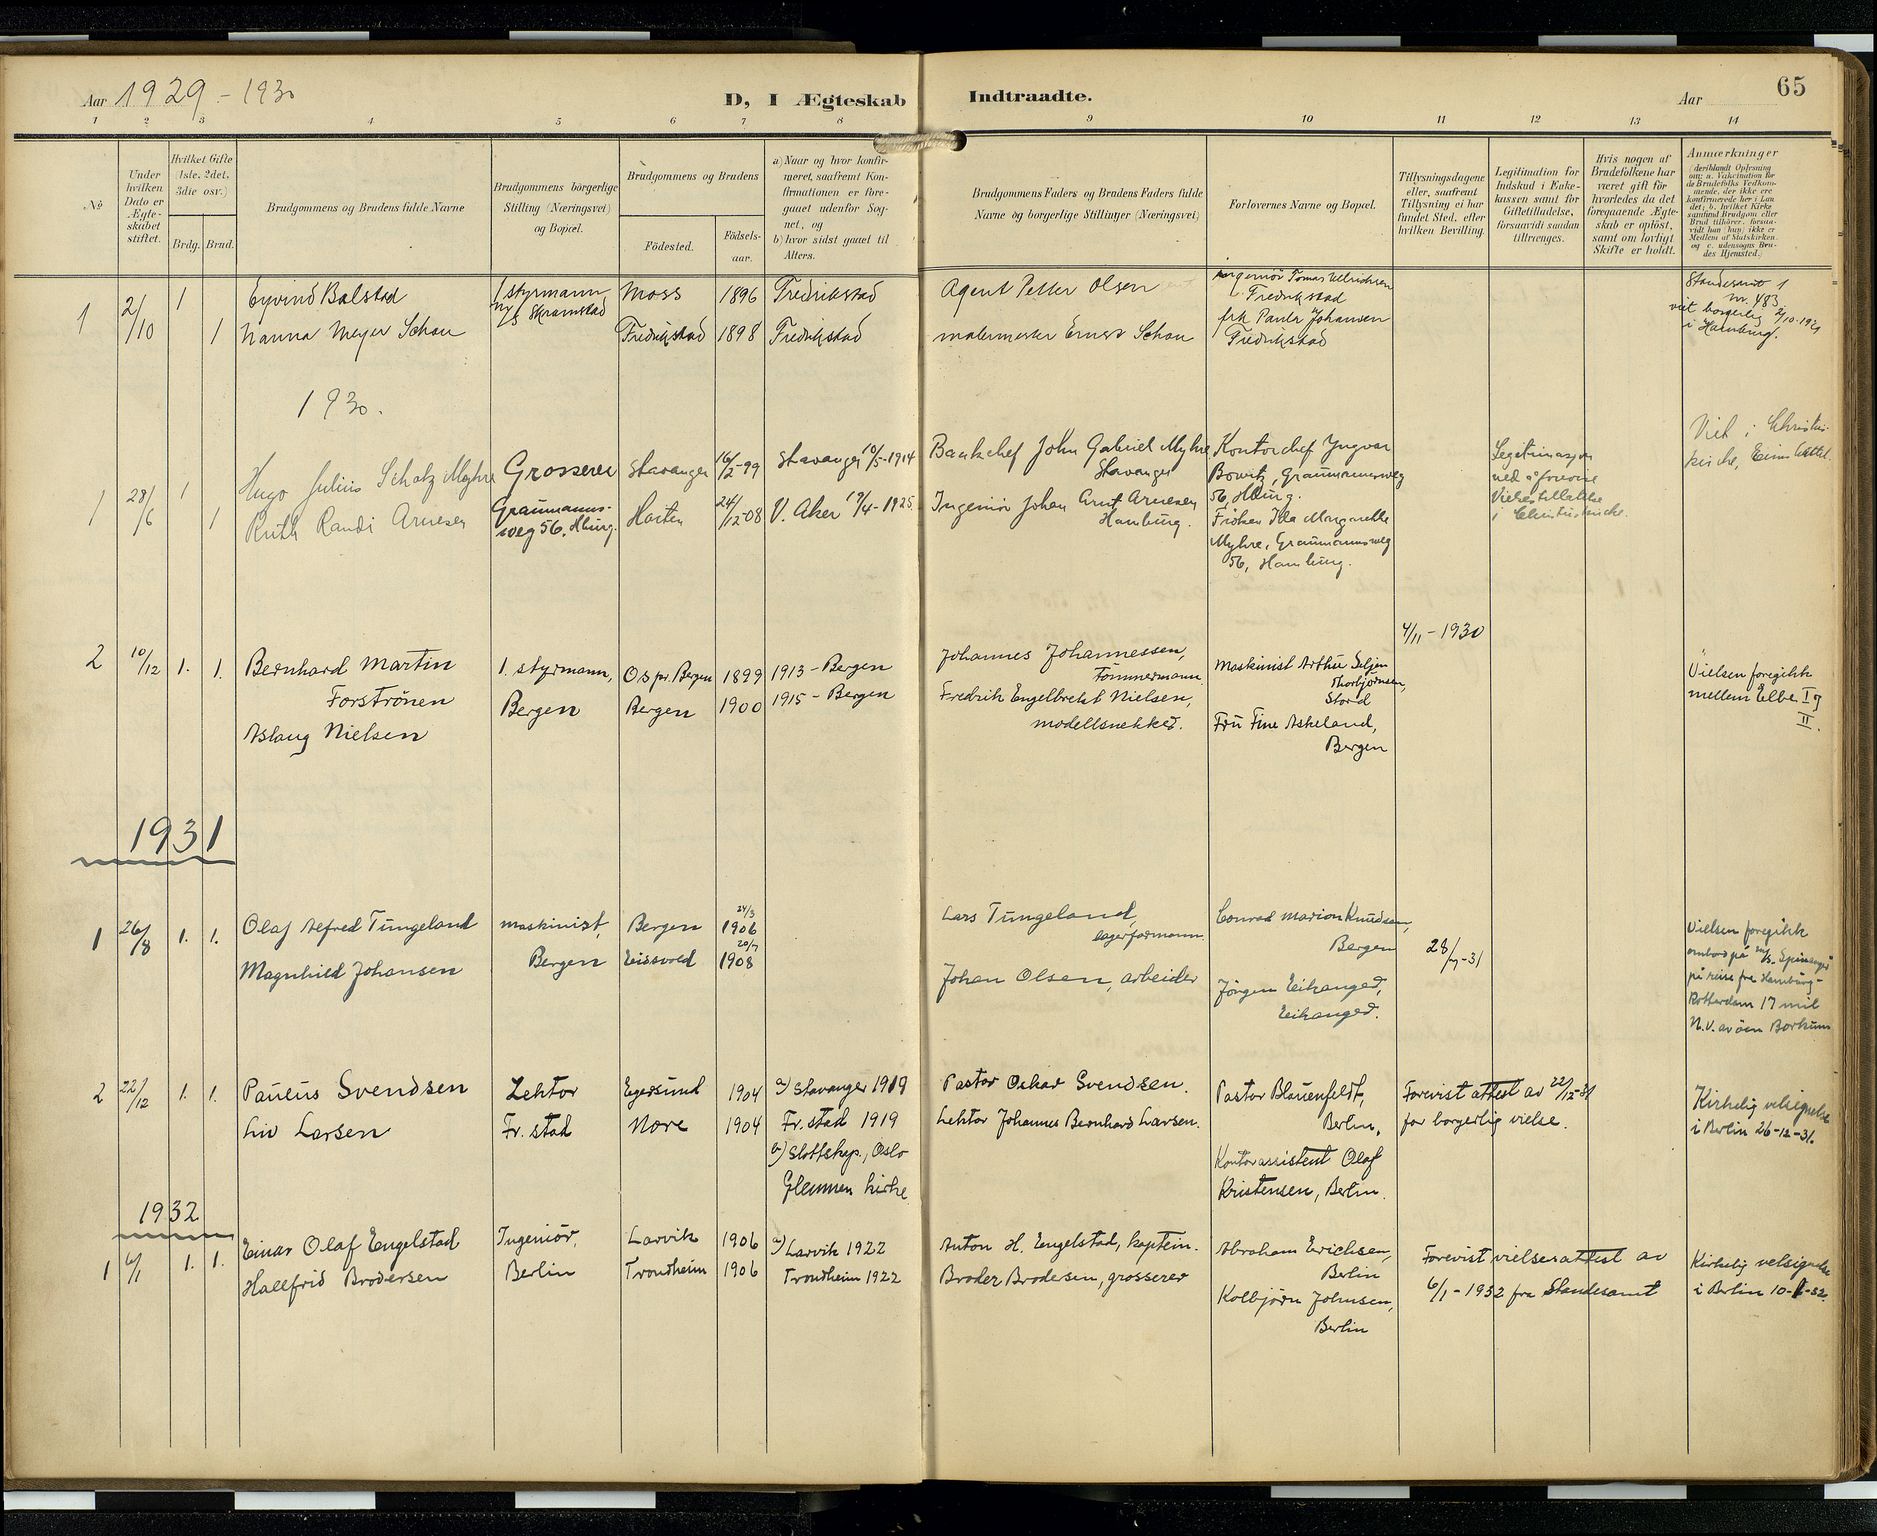 Aar 1929 - 1930
D, I Ægteskab Indtraadte.
Aar
65
1 2 3 4 5 6 7 8 9 10 11 12 13 14
No
Under hvilken Dato er Ægteskabet stiftet.
Hvilket Gifte (1ste, 2det, 3die osv.)
Brdg. Brud.
Brudgommens og Brudens fulde Navne
Brudgommens borgerlige Stilling (Næringsvei) og Bopæl.
Brudgommens og Brudens
Födested.
Födsels-aar.
a) Naar og hvor konfirmeret, saafremt Konfirmationen er foregaaet udenfor Sognet, og
b) hvor sidst gaaet til Alters.
Brudgommens Faders og Brudens Faders fulde Navne og borgerlige Stillinger (Næringsvei)
Forlovernes Navne og Bopæl.
Tillysningsdagene eller, saafremt Tillysning ei har fundet Sted, efter hvilken Bevilling.
Legitimation for Indskud i Enkekassen samt for Giftetilladelse, forsaavidt saadan tiltrænges.
Hvis nogen af Brudefolkene har været gift för hvorledes da det foregaaende Ægteskab er oplöst, samt om lovligt Skifte er holdt.
Anmærkninger
(deriblandt Oplysning om: a. Vakcination for de Brudefolks Vedkommende, der ikke ere konfirmerede her i Landet; b. hvilket Kirkesamfund Brudgom eller Brud tilhører, forsaavidt han (hun) ikke er Medlem af Statskirken. og c. udensogns Brudes Hjemsted.)
1 2/10 1 Eyvind Balstad 1 styrmann Moss 1896 Fredrikstad Agent Petter Olsen
Tomas Ullrichsen
Fredrikstad
D/S Skramstad
1 Nanna Meyer Schou Fredrikstad 1898 Fredrikstad malermester Ernst Schou
frk. Paula Johansen
Fredrikstad
Standesamt 1
nr. 483
viet borgerlig 2/10-1929
i Hamburg.
1930.
1 28/6 1 Hugo Julius Schatz Myhre Grosserer Stavanger 16/2-99 Stavanger 10/5-1914 Bankchef John Gabriel Myhre,
Stavanger
1 Ruth Randi Arnesen Graumanns-
weg 56, Hburg. Horten 24/12-08 V. Aker 19/4-1925 Ingeniör Johan Arnt Arnesen
Hamburg.
Kontorchef Yngvar
Bowitz, Graumannsweg
56, Hburg.
Fröken Ida Margarethe
Myhre, Graumannsweg
56, Hamburg.
Legitimasjon
ved å forevise
Vielsestillatelse
i Christuskirche.
Viet i Christus-
kirche, Eimsbüttel.
2 10/12 1. 1. Bernhard Martin
Forströnen
Aslaug Nielsen
1. styrmann,
Bergen
Os pr. Bergen 1899 1913 - Bergen
Bergen 1900 1915 - Bergen
Johannes Johannessen,
Tömmermann
Fredrik Engelbrekt Nielsen,
modellsnekker.
Maskinist Arthur Seljen
Thorbjørnsen,
Stord
Fru Fine Askeland,
Bergen
4/11 - 1930
Vielsen foregikk
mellem Elbe I og
II.
1931
1 26/8 1. 1. Olaf Alfred Tungeland maskinist, Bergen 24/3 1906
Magnhild Johansen Bergen Eidsvold 20/7 1908
Lars Tungeland,
lagerformann
Johan Olsen, arbeider
Conrad Marion Knudsen,
Bergen
Jörgen Eikanger,
Eikanger.
28/7-31
Vielsen foregikk
ombord på M/S. "Spinanger"
på reise fra Hamburg-
Rotterdam 17 mil
N.V. av öen Borkum
2 22/12 1. 1. Paulus Svendsen Lektor Egersund 1904 a) Stavanger 1919
Liv Larsen Fr. stad Nore 1904 Fr. stad 1919
b) Slottskap., Oslo
Glemmen kirke
Pastor Oskar Svendsen.
Lektor Johannes Bernhard Larsen.
Pastor Blauenfeldt,
Berlin,
Kontorassistent Olaf
Kristensen, Berlin.
Forevist attest av 22/12-31
for borgerlig vielse.
Kirkelig velsignelse
i Berlin 26-12-31.
1932
1 6/1 1. 1. Einar Olaf Engelstad Ingeniör, Larvik 1906 a) Larvik 1922
Hallfrid Brodersen Berlin Trondheim 1906 Trondheim 1922
Anton H. Engelstad, kaptein.
Broder Brodersen, grosserer
Abraham Erichsen,
Berlin
Kolbjörn Johnsen,
Berlin
Forevist vielsesattest av
6/1-1932 fra Standesamt
Kirkelig velsignelse
i Berlin 10-1-32.